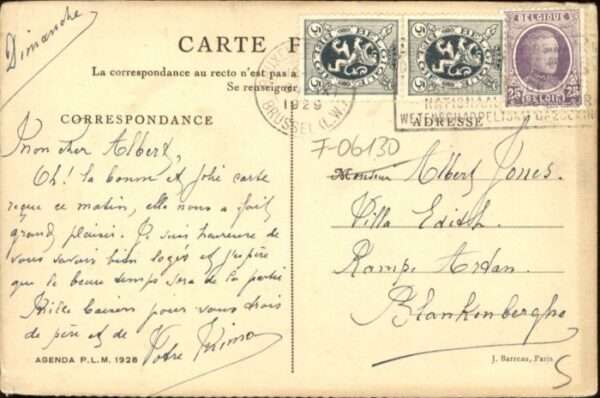 Dimanche
CARTE P
La correspondance au recto n'est pas a
Se renseigner
BRUSSEL (L.W.)
1929
BELGIE
5 5
BELGIE
5 5
BELGIQUE
25c 25c
BELGIË
NATIONAAL
WETENSCHAPPELIJK OPZOEKIN
CORRESPONDANCE
ADRESSE
7-06130
Mon cher Albert,
Oh! la bonne et jolie carte
reçue ce matin, elle nous a fait
grand plaisir. Je suis heureuse de
vous savoir bien logés et j'espère
que le beau temps sera de la partie
Mille baisers pour vous trois
de père et de Votre Mima
Monsieur Albert Jones.
Villa Edith
Rampe Ardan.
Blankenberghe
AGENDA P.L.M. 1928
J. Barreau, Paris
5